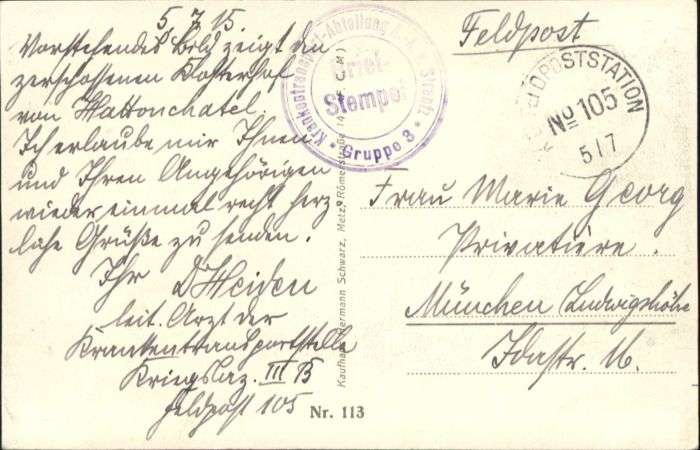 5.7.15.
Vorstehendes Bild zeigt den
zerschossenen Klosterhof
von Hattonchatel.
Ich erlaube mir Ihnen
und Ihren Angehörigen
wieder einmal recht herz
liche Grüße zu senden.
Ihr D Heiden
leit. Arzt der
Krankentransportstelle
Kriegslaz. III B
Feldpost 105
Krankentransport-Abteilung
Brief-
Stempel
Gruppe 3
Kaufhaus Hermann Schwarz, Metz, Römerstraße
Nr. 113
Feldpost
FELDPOSTSTATION
No 105
5/7
Frau Marie Georg
Privatière.
München Ludwigshöhe
Idastr. 16.